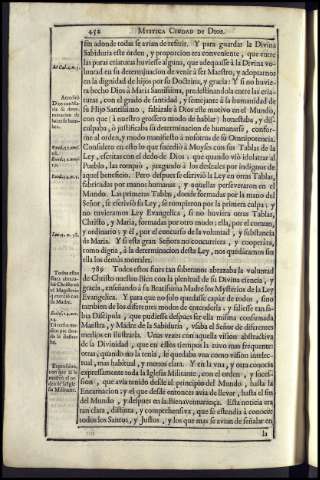 452 MYSTICA CIUDAD DE DIOS.
sin adonde todas se avian de reducir. Y para guardar la Divina
Sabiduria este orden, y proporcion era conveniente, que entre
las puras criaturas huviesse alguna, que adequasse à la Divina vo-
luntad en su determinacion de venir à ser Maestro, y adoptarnos
en la dignidad de hijos por su Doctrina, y gracia: Y si no huvie-
ra hecho Dios à Maria Santissima, predestinandola entre las cria-
turas, con el grado de santidad, y semejança à la humanidad de
su Hijo Santissimo; faltàrale à Dios este motivo en el Mundo,
con que (à nuestro grossero modo de hablar) honestaba, y dis-
culpaba, ò justificaba su determinacion de humanarse, confor-
me al orden, y modo manifesto à nosotros de su Omnipotencia.
Considero en esto lo que sucediò à Moyses con sus Tablas de la
Ley, escritas con el dedo de Dios: que quando viò idolatrar al
Pueblo, las rompiò, juzgando à los desleales por indignos de
aquel beneficio. Pero despues se escriviò la Ley en otras Tablas,
fabricadas por manos humanas; y aquellas perseveraron en el
Mundo. Las primeras Tablas, donde formadas por la mano del
Señor, se escriviò su Ley, se rompieron por la primera culpa; y
no tuvieramos Ley Evangelica, si no huviera otras Tablas,
Christo, y Maria, formadas por otro modo; ella, por el comun,
y ordinario; y èl, por el concurso de la voluntad, y substancia
de Maria. Y si esta gran Señora no concurriera, y cooperàra,
como digna, à la determinacion desta Ley, nos quedàramos sin
ella los demàs mortales.
789 Todos estos fines tan soberanos abrazaba la voluntad
de Christo nuestro Bien con la plenitud de su Divina ciencia, y
gracia, enseñando à su Beatissima Madre los Mysterios de la Ley
Evangelica. Y para que no solo quedasse capàz de todos, sino
tambien de los diferentes modos de entenderla; y saliesse tan sa-
bia Discipula, que pudiesse despues ser ella misma consumada
Maestra, y Madre de la Sabiduria, usaba el Señor de diferentes
medios en ilustrarla. Unas vezes con aquella vision abstractiva
de la Divinidad, que en estos tiempos la tuvo mas frequente:
otras, quando no la tenia, le quedaba una como vision intelec-
tual, mas habitual, y menos clara. Y en la una, y otra conocia
expressamente toda la Iglesia Militante, con el orden, y suces-
sion, que avia tenido desde el principio del Mundo, hasta la
Encarnacion; y el que desde entonces avia de llevar, hasta el fin
del Mundo, y despues en la Bienaventurança. Esta noticia era
tan clara, distinta, y comprehensiva, que se estendia à conocer
todos los Santos, y Justos, y los que mas se avian de señalar en
la